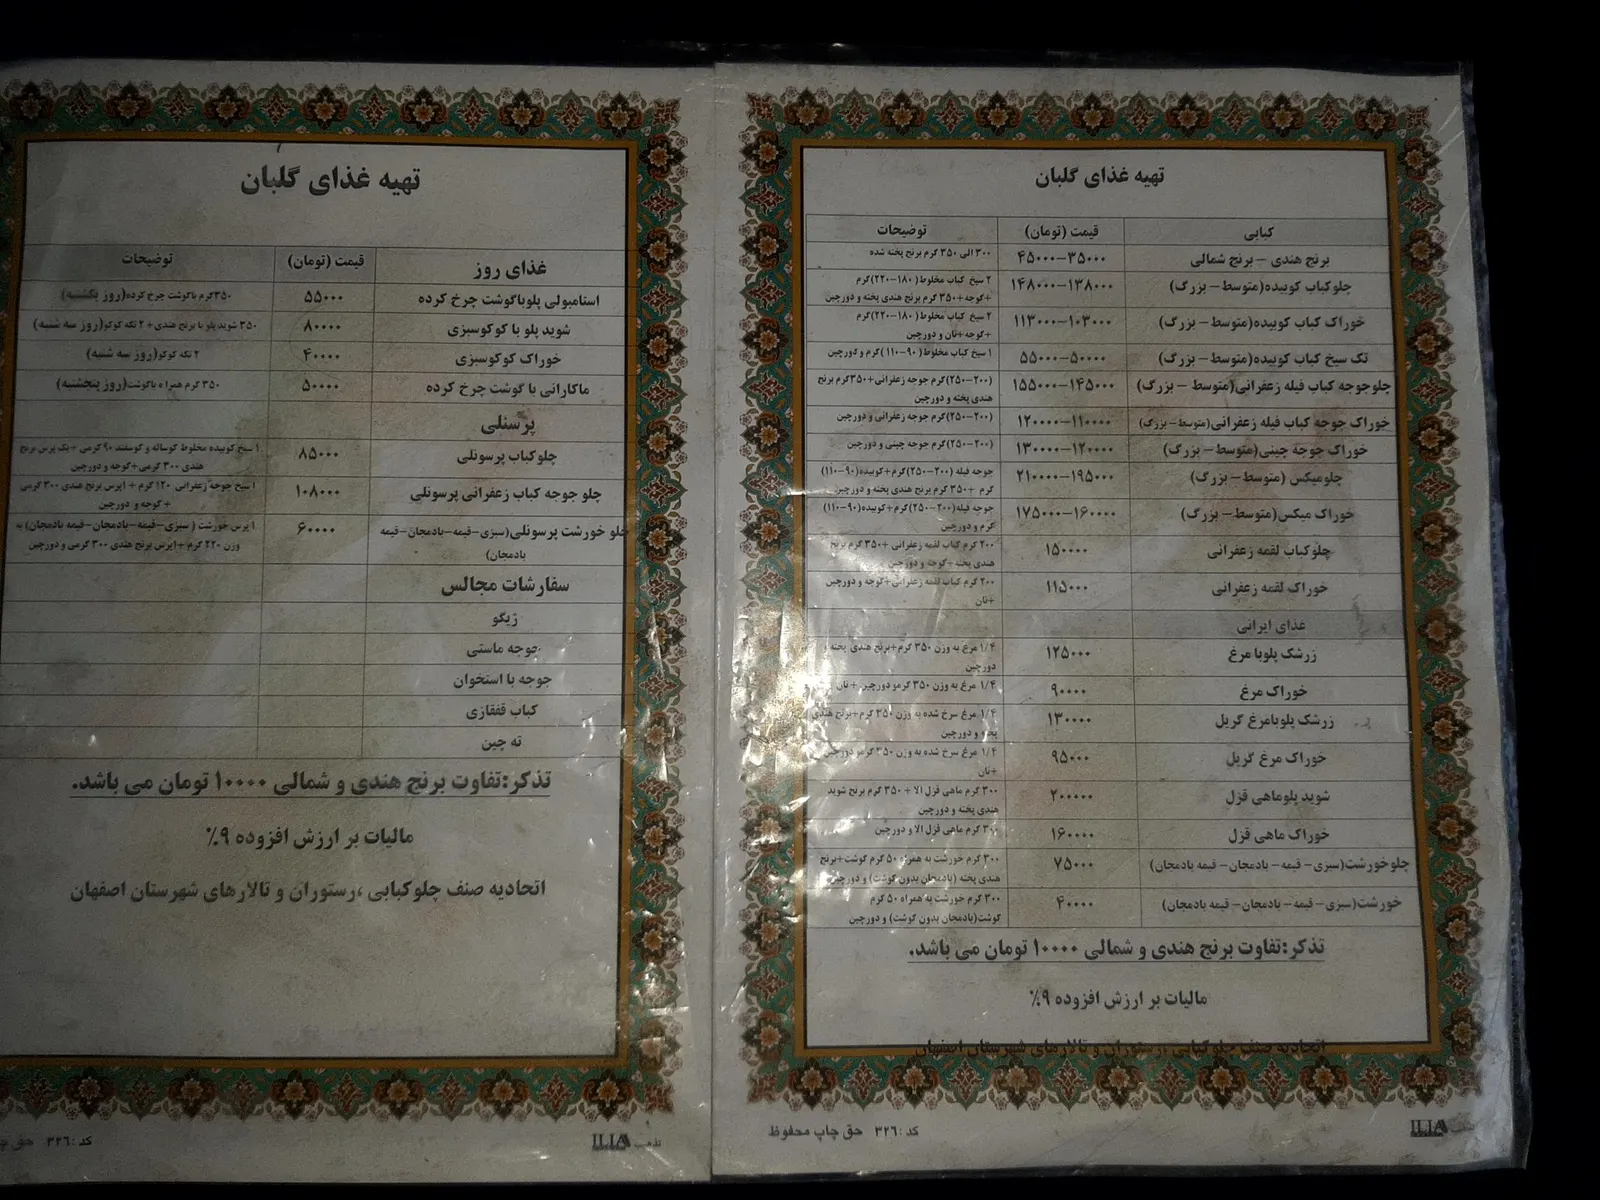 تهیه غذای گلبان
کبابی	قیمت (تومان)	توضیحات
برنج هندی – برنج شمالی	۳۵۰۰۰–۴۵۰۰۰	۳۰۰ الی ۳۵۰ گرم برنج پخته شده
چلوکباب کوبیده(متوسط – بزرگ)	۱۳۸۰۰۰–۱۴۸۰۰۰	۲ سیخ کباب مخلوط( ۱۸۰–۲۲۰)گرم
+گوجه+۳۵۰ گرم برنج هندی پخته و دورچین
خوراک کباب کوبیده(متوسط – بزرگ)	۱۰۳۰۰۰–۱۱۳۰۰۰	۲ سیخ کباب مخلوط( ۱۸۰–۲۲۰)گرم
+گوجه+نان و دورچین
تک سیخ کباب کوبیده(متوسط – بزرگ)	۵۰۰۰۰–۵۵۰۰۰	۱ سیخ کباب مخلوط( ۹۰–۱۱۰)گرم و دورچین
چلوجوجه کباب فیله زعفرانی(متوسط – بزرگ)	۱۴۵۰۰۰–۱۵۵۰۰۰	(۲۰۰–۲۵۰)گرم جوجه زعفرانی+۳۵۰گرم برنج
هندی پخته و دورچین
خوراک جوجه کباب فیله زعفرانی(متوسط – بزرگ)	۱۱۰۰۰۰–۱۲۰۰۰۰	(۲۰۰–۲۵۰)گرم جوجه زعفرانی و دورچین
خوراک جوجه چینی(متوسط – بزرگ)	۱۲۰۰۰۰–۱۳۰۰۰۰	(۲۰۰–۲۵۰)گرم جوجه چینی و دورچین
چلومیکس (متوسط – بزرگ)	۱۹۵۰۰۰–۲۱۰۰۰۰	جوجه فیله (۲۰۰–۲۵۰)گرم+کوبیده(۹۰–۱۱۰)
گرم +۳۵۰ گرم برنج هندی پخته و دورچین
خوراک میکس(متوسط – بزرگ)	۱۶۰۰۰۰–۱۷۵۰۰۰	جوجه فیله(۲۰۰–۲۵۰)گرم+کوبیده(۹۰–۱۱۰)
گرم و دورچین
چلوکباب لقمه زعفرانی	۱۵۰۰۰۰	۲۰۰ گرم کباب لقمه زعفرانی +۳۵۰ گرم برنج
هندی پخته +گوجه و دورچین
خوراک لقمه زعفرانی	۱۱۵۰۰۰	۲۰۰ گرم کباب لقمه زعفرانی+گوجه و دورچین
+نان
غذای ایرانی
زرشک پلوبا مرغ	۱۲۵۰۰۰	۱/۴ مرغ به وزن ۳۵۰ گرم+برنج هندی پخته و
دورچین
خوراک مرغ	۹۰۰۰۰	۱/۴ مرغ به وزن ۳۵۰ گرمو دورچین + نان
زرشک پلوبامرغ گریل	۱۳۰۰۰۰	۱/۴ مرغ سرخ شده به وزن ۳۵۰ گرم+برنج هندی
پخته و دورچین
خوراک مرغ گریل	۹۵۰۰۰	۱/۴ مرغ سرخ شده به وزن ۳۵۰ گرمو دورچین
+نان
شوید پلوماهی قزل	۲۰۰۰۰۰	۳۰۰ گرم ماهی قزل الا + ۳۵۰ گرم برنج شوید
هندی پخته و دورچین
خوراک ماهی قزل	۱۶۰۰۰۰	۳۰۰ گرم ماهی قزل الا و دورچین
چلوخورشت(سبزی – قیمه – بادمجان – قیمه بادمجان)	۷۵۰۰۰	۳۰۰ گرم خورشت به همراه ۵۰ گرم گوشت+برنج
هندی پخته (بادمجان بدون گوشت) و دورچین
خورشت(سبزی – قیمه – بادمجان – قیمه بادمجان)	۴۰۰۰۰	۳۰۰ گرم خورشت به همراه ۵۰ گرم
گوشت(بادمجان بدون گوشت) و دورچین
تذکر:تفاوت برنج هندی و شمالی ۱۰۰۰۰ تومان می باشد.
مالیات بر ارزش افزوده ۹٪
اتحادیه صنف چلوکبابی ،رستوران و تالارهای شهرستان اصفهان
ILIA
کد : ۳۲۶ حق چاپ محفوظ
تهیه غذای گلبان
غذای روز	قیمت (تومان)	توضیحات
استامبولی پلوباگوشت چرخ کرده	۵۵۰۰۰	۳۵۰گرم باگوشت چرخ کرده(روز یکشنبه)
شوید پلو با کوکوسبزی	۸۰۰۰۰	۳۵۰ شوید پلو با برنج هندی+ ۲ تکه کوکو(روز سه شنبه)
خوراک کوکوسبزی	۴۰۰۰۰	۲ تکه کوکو(روز سه شنبه)
ماکارانی با گوشت چرخ کرده	۵۰۰۰۰	۳۵۰ گرم همراه باگوشت(روز پنجشنبه)
پرسنلی
چلوکباب پرسونلی	۸۵۰۰۰	۱ سیخ کوبیده مخلوط گوساله و گوسفند ۹۰ گرمی +یک پرس برنج
هندی ۳۰۰ گرمی+گوجه و دورچین
چلو جوجه کباب زعفرانی پرسونلی	۱۰۸۰۰۰	۱ سیخ جوجه زعفرانی ۱۲۰ گرم + ۱پرس برنج هندی ۳۰۰ گرمی
+گوجه و دورچین
چلو خورشت پرسونلی(سبزی –قیمه –بادمجان–قیمه	۶۰۰۰۰	۱ پرس خورشت ( سبزی–قیمه –بادمجان– قیمه بادمجان) به
بادمجان)	وزن ۲۲۰ گرم +۱پرس برنج هندی ۳۰۰ گرمی و دورچین
سفارشات مجالس
ژیگو
جوجه ماستی
جوجه با استخوان
کباب قفقازی
ته چین
تذکر:تفاوت برنج هندی و شمالی ۱۰۰۰۰ تومان می باشد.
مالیات بر ارزش افزوده ۹٪
اتحادیه صنف چلوکبابی ،رستوران و تالارهای شهرستان اصفهان
تذهیب ILIA
کد : ۳۲۶ حق